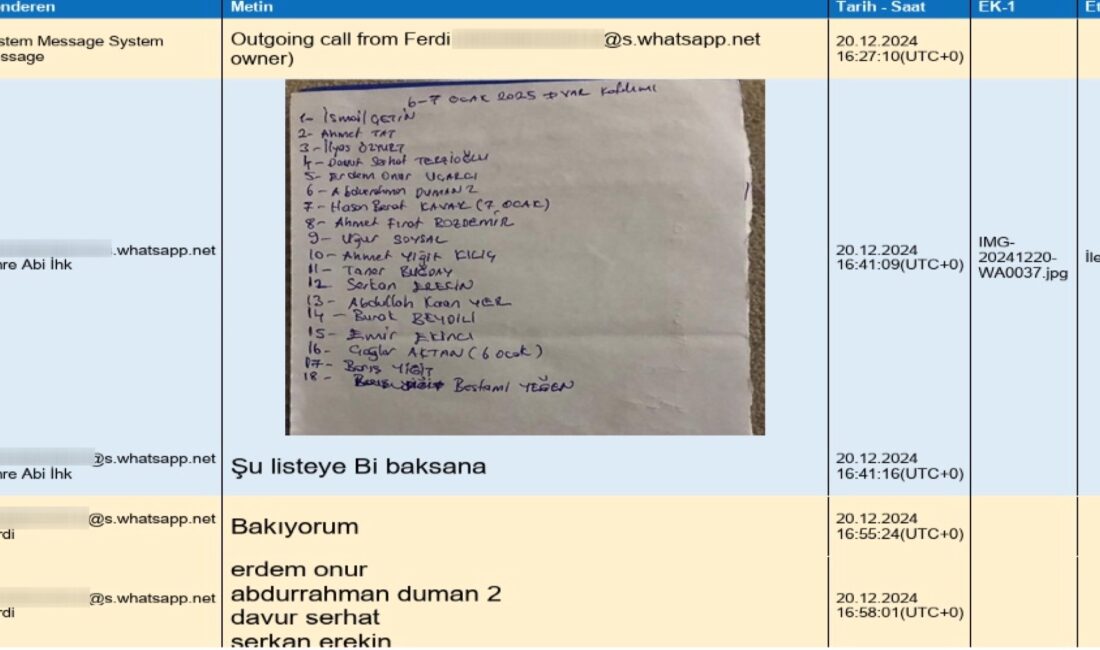 nderen Metin Tarih - Saat EK-1 Et
stem Message System
ssage
Outgoing call from Ferdi @s.whatsapp.net
owner)
20.12.2024
16:27:10(UTC+0)
6-7 OCAK 2025 DVAL
1- İsmail ÇETİN
2- Ahmet TAT
3- İlyas ÖZYURT
4- Davut Serhat TERZİOĞLU
5- Erdem Onur UÇARCI
6- Abdurrahman DUMAN 2
7- Hasan Berat KAVAK (7 OCAK)
8- Ahmet Fırat BOZDEMİR
9- Uğur SOYSAL
10- Ahmet Yiğit KILIÇ
11- Taner BUĞDAY
12 Serkan EREKİN
13- Abdullah Kaan YER
14- Burak BEYDİLİ
15- Emir EKİNCİ
16- Çağlar AKTAN (6 ocak)
17- Barış YİĞİT
18- Bestami YEĞEN
.whatsapp.net
re Abi İhk
20.12.2024
16:41:09(UTC+0)
IMG-
20241220-
WA0037.jpg
İle
@s.whatsapp.net
re Abi İhk
Şu listeye Bi baksana
20.12.2024
16:41:16(UTC+0)
@s.whatsapp.net
rdi
Bakıyorum
20.12.2024
16:55:24(UTC+0)
@s.whatsapp.net
rdi
erdem onur
abdurrahman duman 2
davur serhat
serkan erekin
20.12.2024
16:58:01(UTC+0)